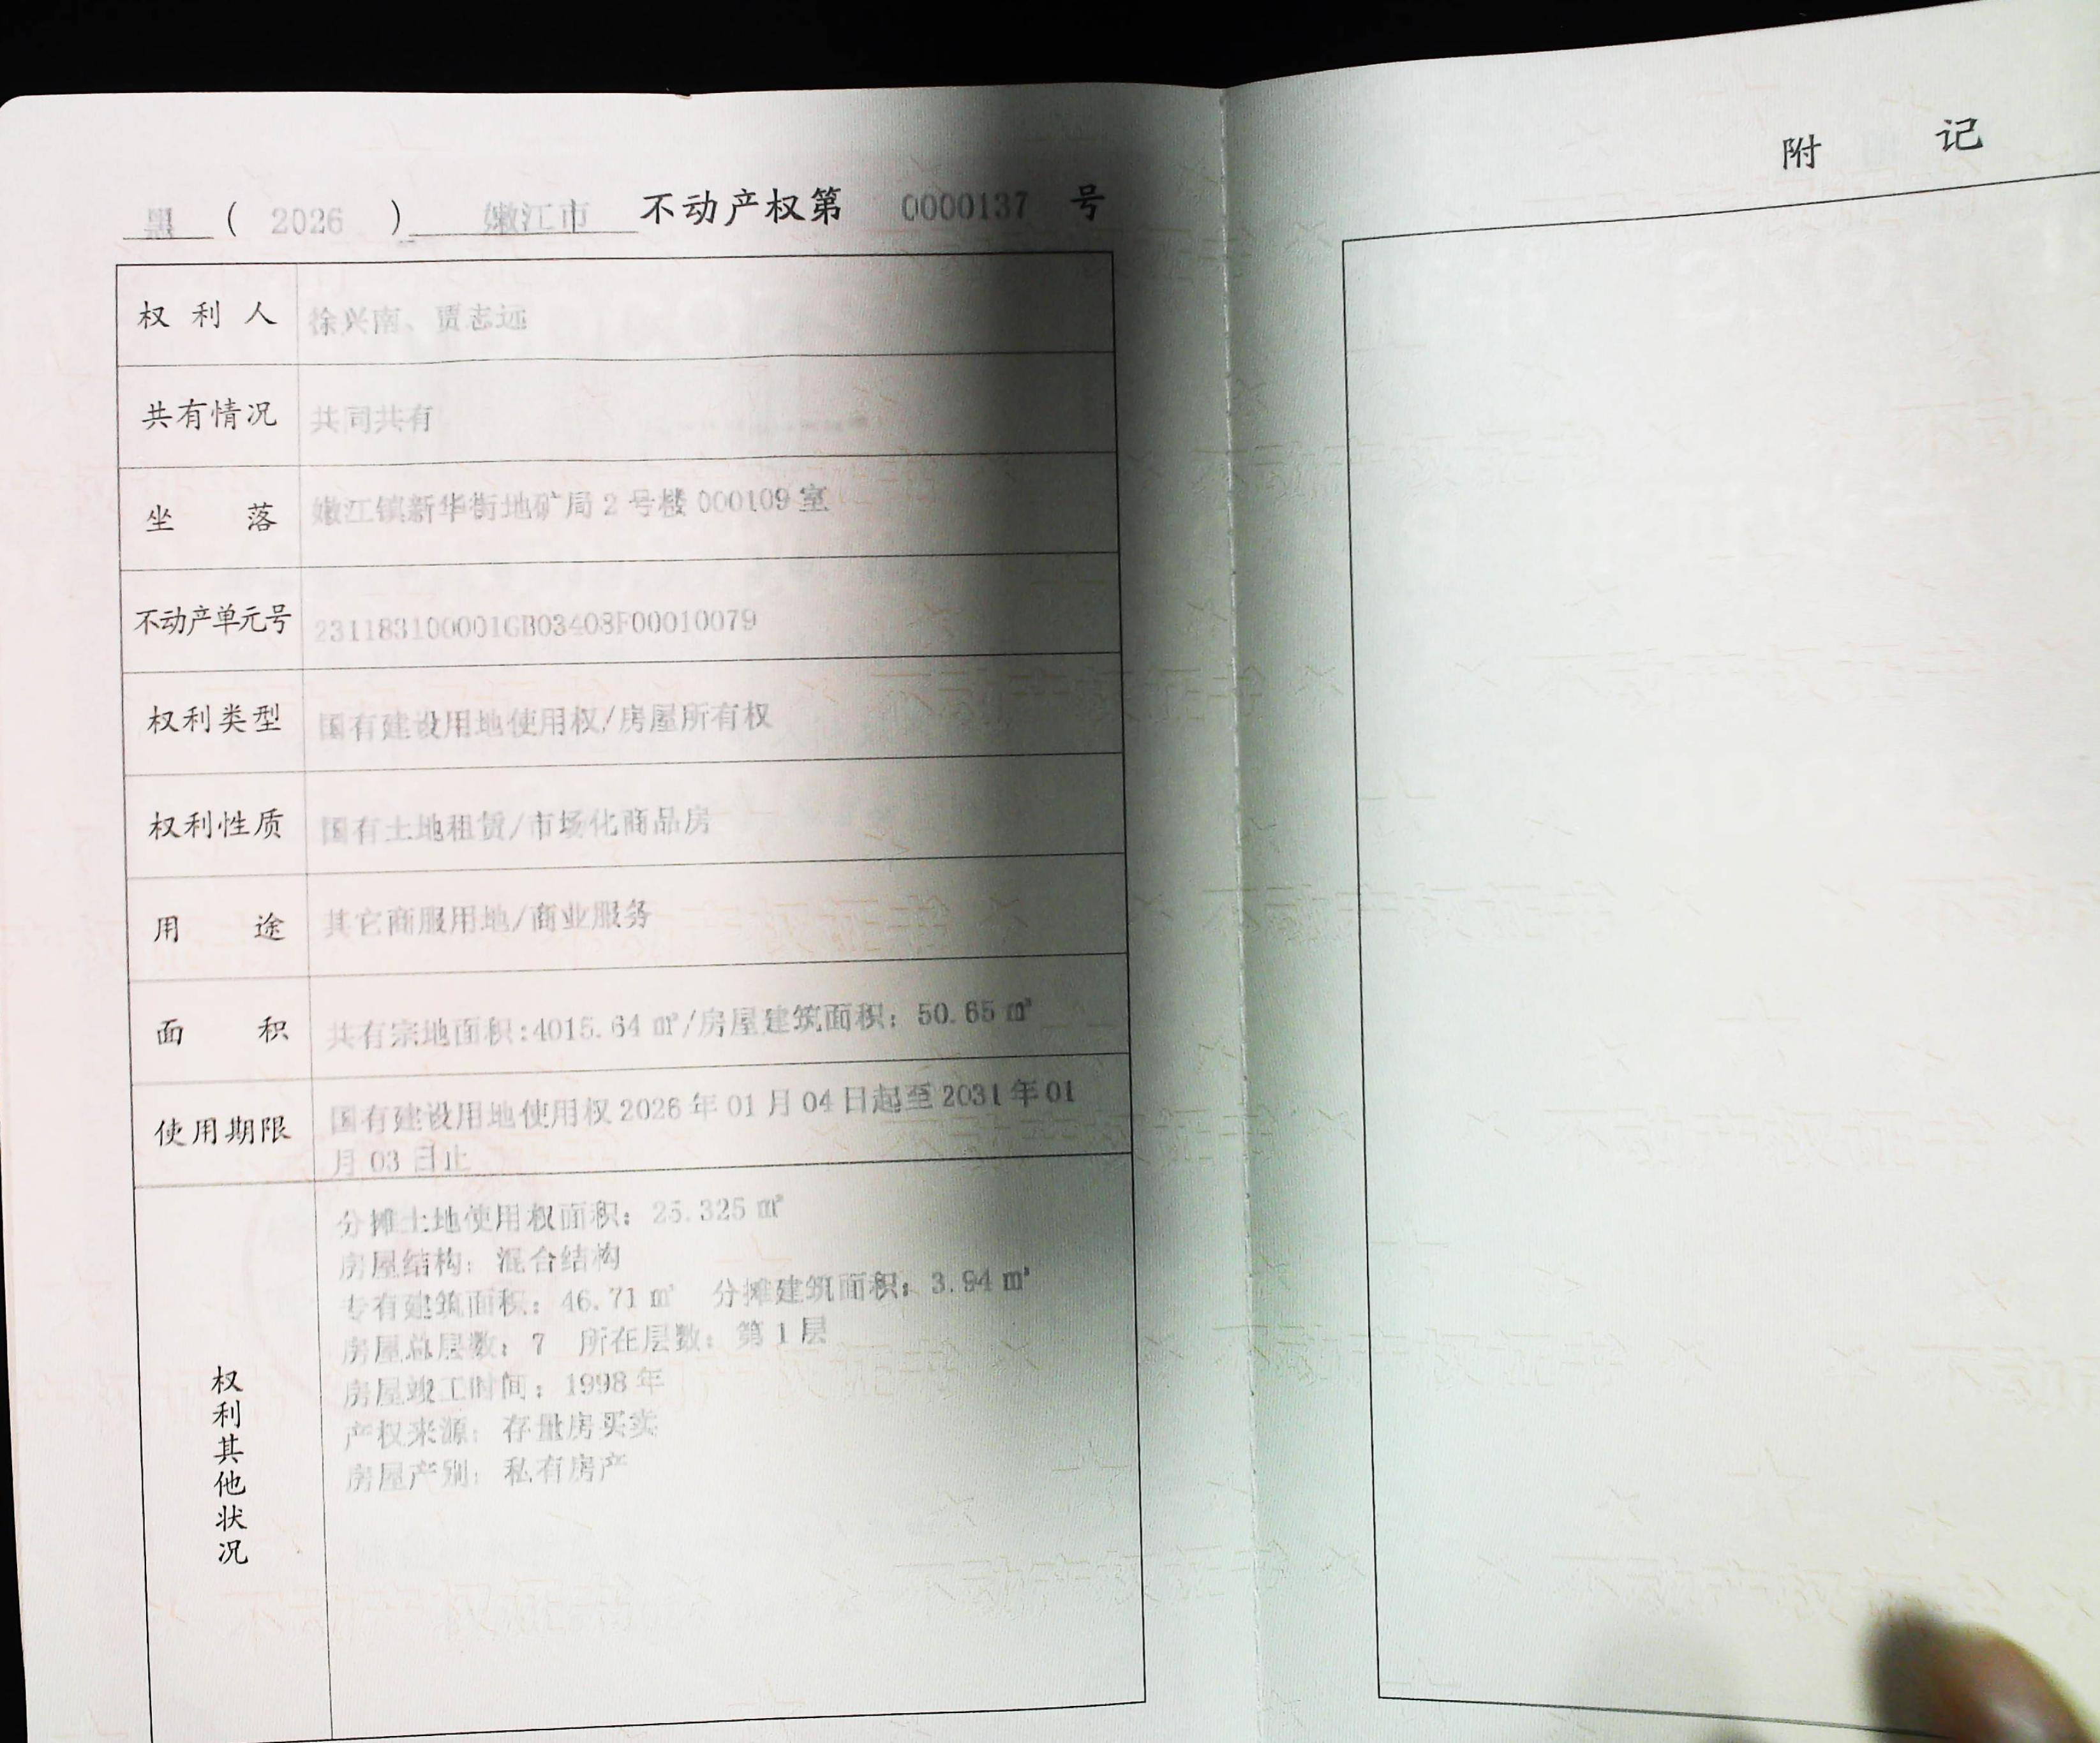 黑 ( 2026 ) 嫩江市 不动产权第 0000137 号
权利人 徐兴南、贾志远
共有情况 共同共有
坐落 嫩江镇新华街地矿局2号楼000109室
不动产单元号 231183100001GB03408F00010079
权利类型 国有建设用地使用权/房屋所有权
权利性质 国有土地租赁/市场化商品房
用途 其它商服用地/商业服务
面积 共有宗地面积:4015.64㎡/房屋建筑面积：50.65㎡
使用期限 国有建设用地使用权2026年01月04日起至2031年01
月03日止
权利其他状况
分摊土地使用权面积：25.325㎡
房屋结构：混合结构
专有建筑面积：46.71㎡ 分摊建筑面积：3.94㎡
房屋总层数：7 所在层数：第1层
房屋竣工时间：1998年
产权来源：存量房买卖
房屋产别：私有房产
附记